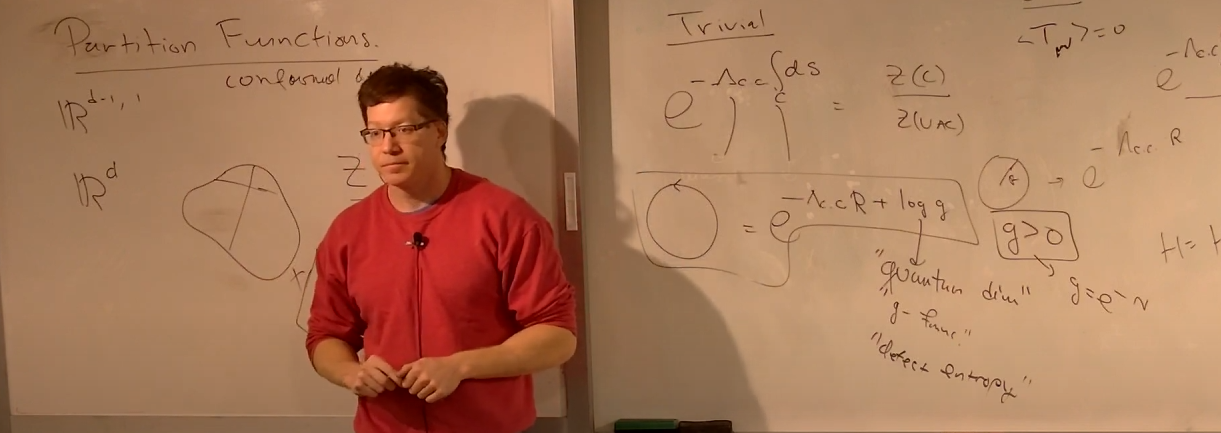 Partition Functions.
conformal
ℝ^{d-1,1}
ℝ^d
Z
Trivial
<T_{μν}>=0
e^{-Λ_{c.c.} ∫_C ds} = Z(C)/Z(VAC)
e^{-Λ_{c.c.}
→ e^{-Λ_{c.c.} R}
= e^{-Λ_{c.c} R + log g}
g>0
H=
"quantum dim"
g=e^{-N}
"g-func."
"defect entropy"